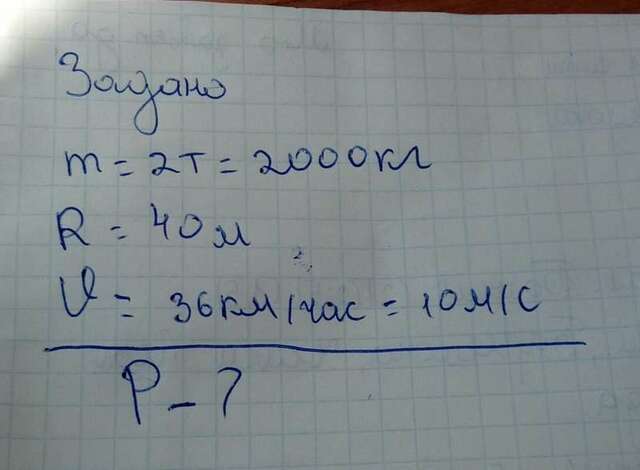 Задано
m = 2т = 2000кг
R = 40м
V = 36км/час = 10м/с
P - ?